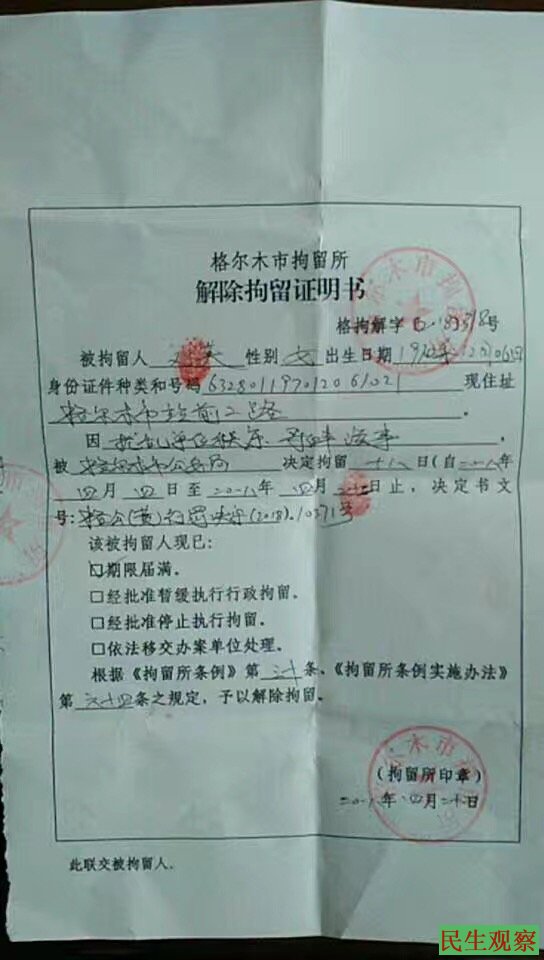 格尔木市拘留所
解除拘留证明书
格拘解字
号
被拘留人 性别 女 出生日期
身份证件种类和号码 632801197012061021 现住址
格尔木市站前二路
因 扰乱单位秩序、寻衅滋事
被 格尔木市公安局 决定拘留 十八 日(自二〇一八年
四月 四日至二〇一八年 四月 二十二日止,决定书文
号:格公(黄)行罚决字(2018).10271号
该被拘留人现已:
☑期限届满。
□经批准暂缓执行行政拘留。
□经批准停止执行拘留。
□依法移交办案单位处理。
根据《拘留所条例》第 三十 条、《拘留所条例实施办法》
第 六十四 条之规定,予以解除拘留。
(拘留所印章)
二〇一八年 四月二十 日
此联交被拘留人。
民生观察